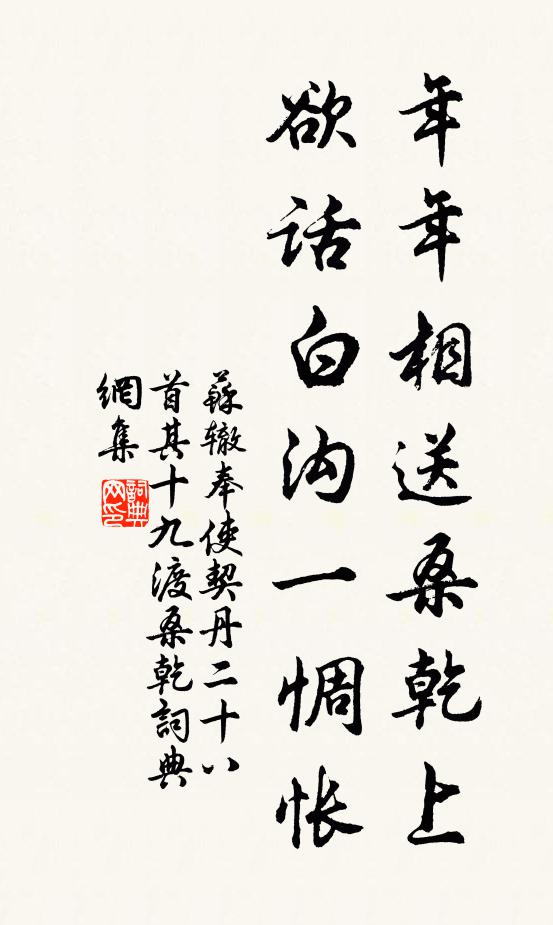 年年相送桑乾上
欲话白沟一惆怅
蘇辙奉使契丹二十八
首其十九渡桑乾詞典
網集
詞典
网印